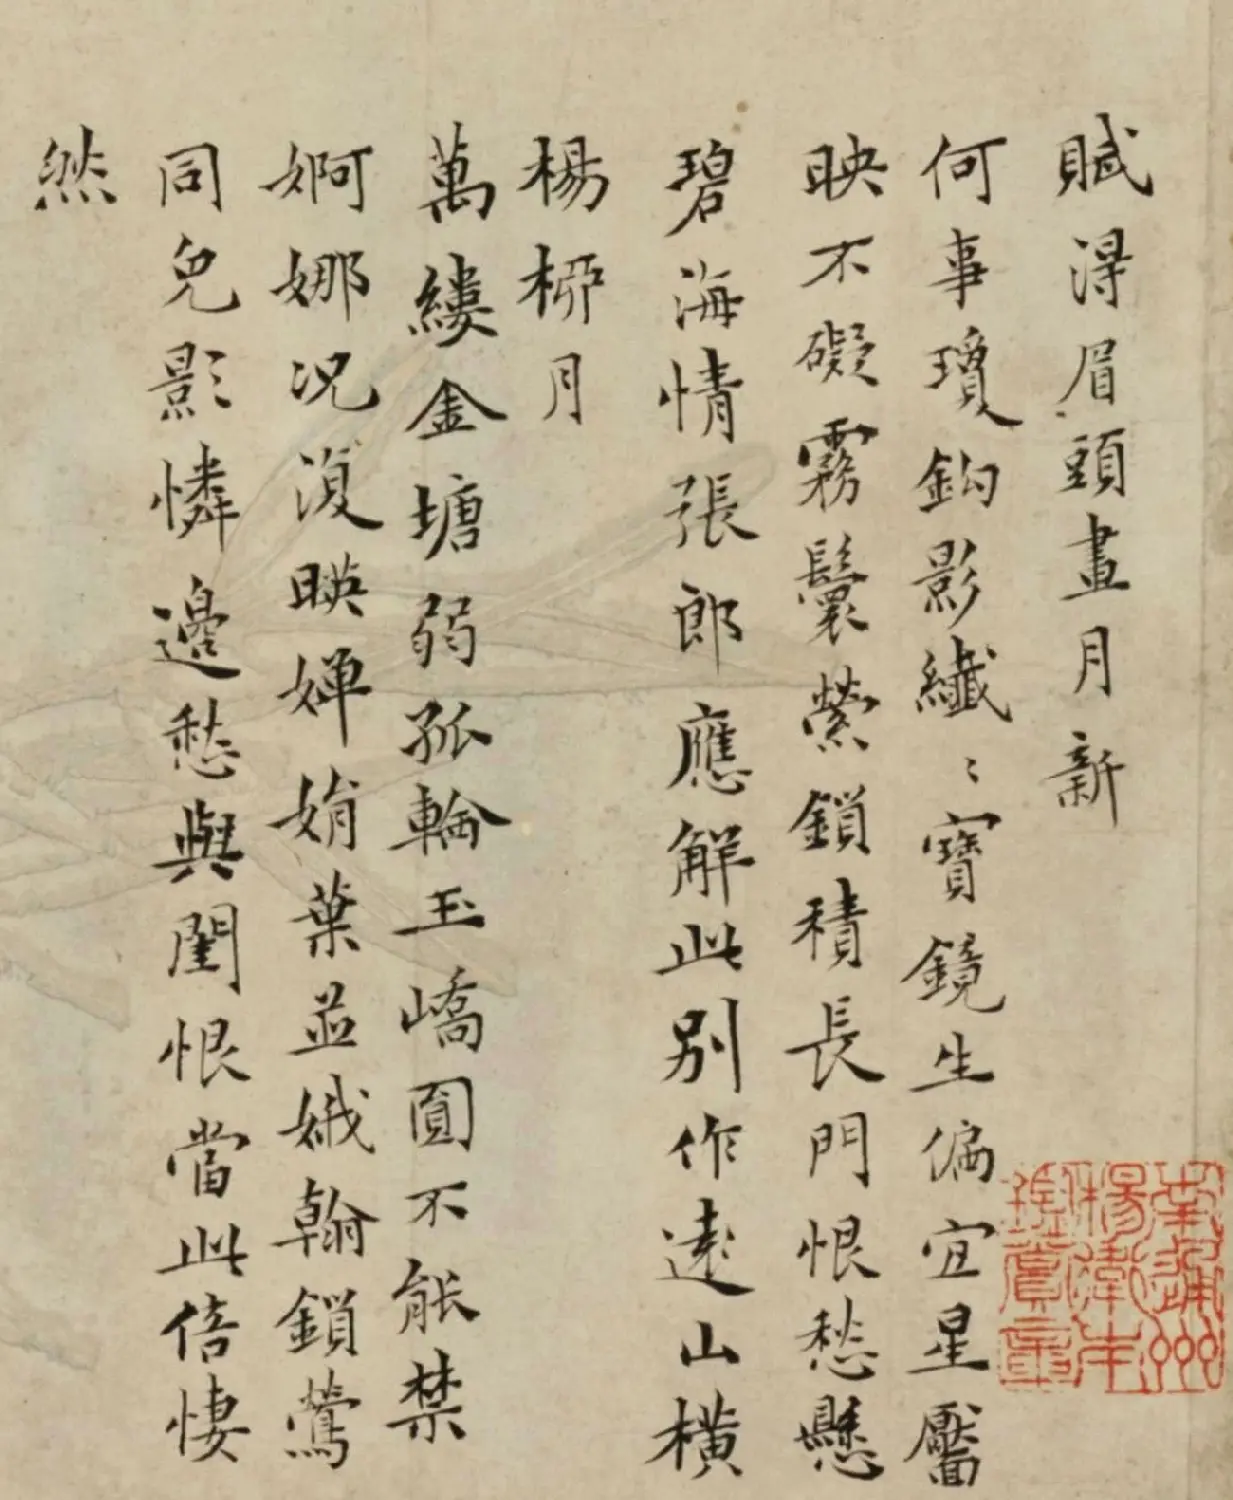 賦得眉頭畫月新
何事瓊鈎影纖〻寶鏡生偏宜星靨
映不礙霧鬟縈鎖積長門恨愁懸
碧海情張郎應解此別作遠山橫
楊柳月
萬縷金塘弱孤輪玉嶠圓不能禁
婀娜况復暎嬋娟葉並娥翰鎖鶯
同兔影憐邊愁與閨恨當此倍悽
然
南通州
楊衛生
珍賞章